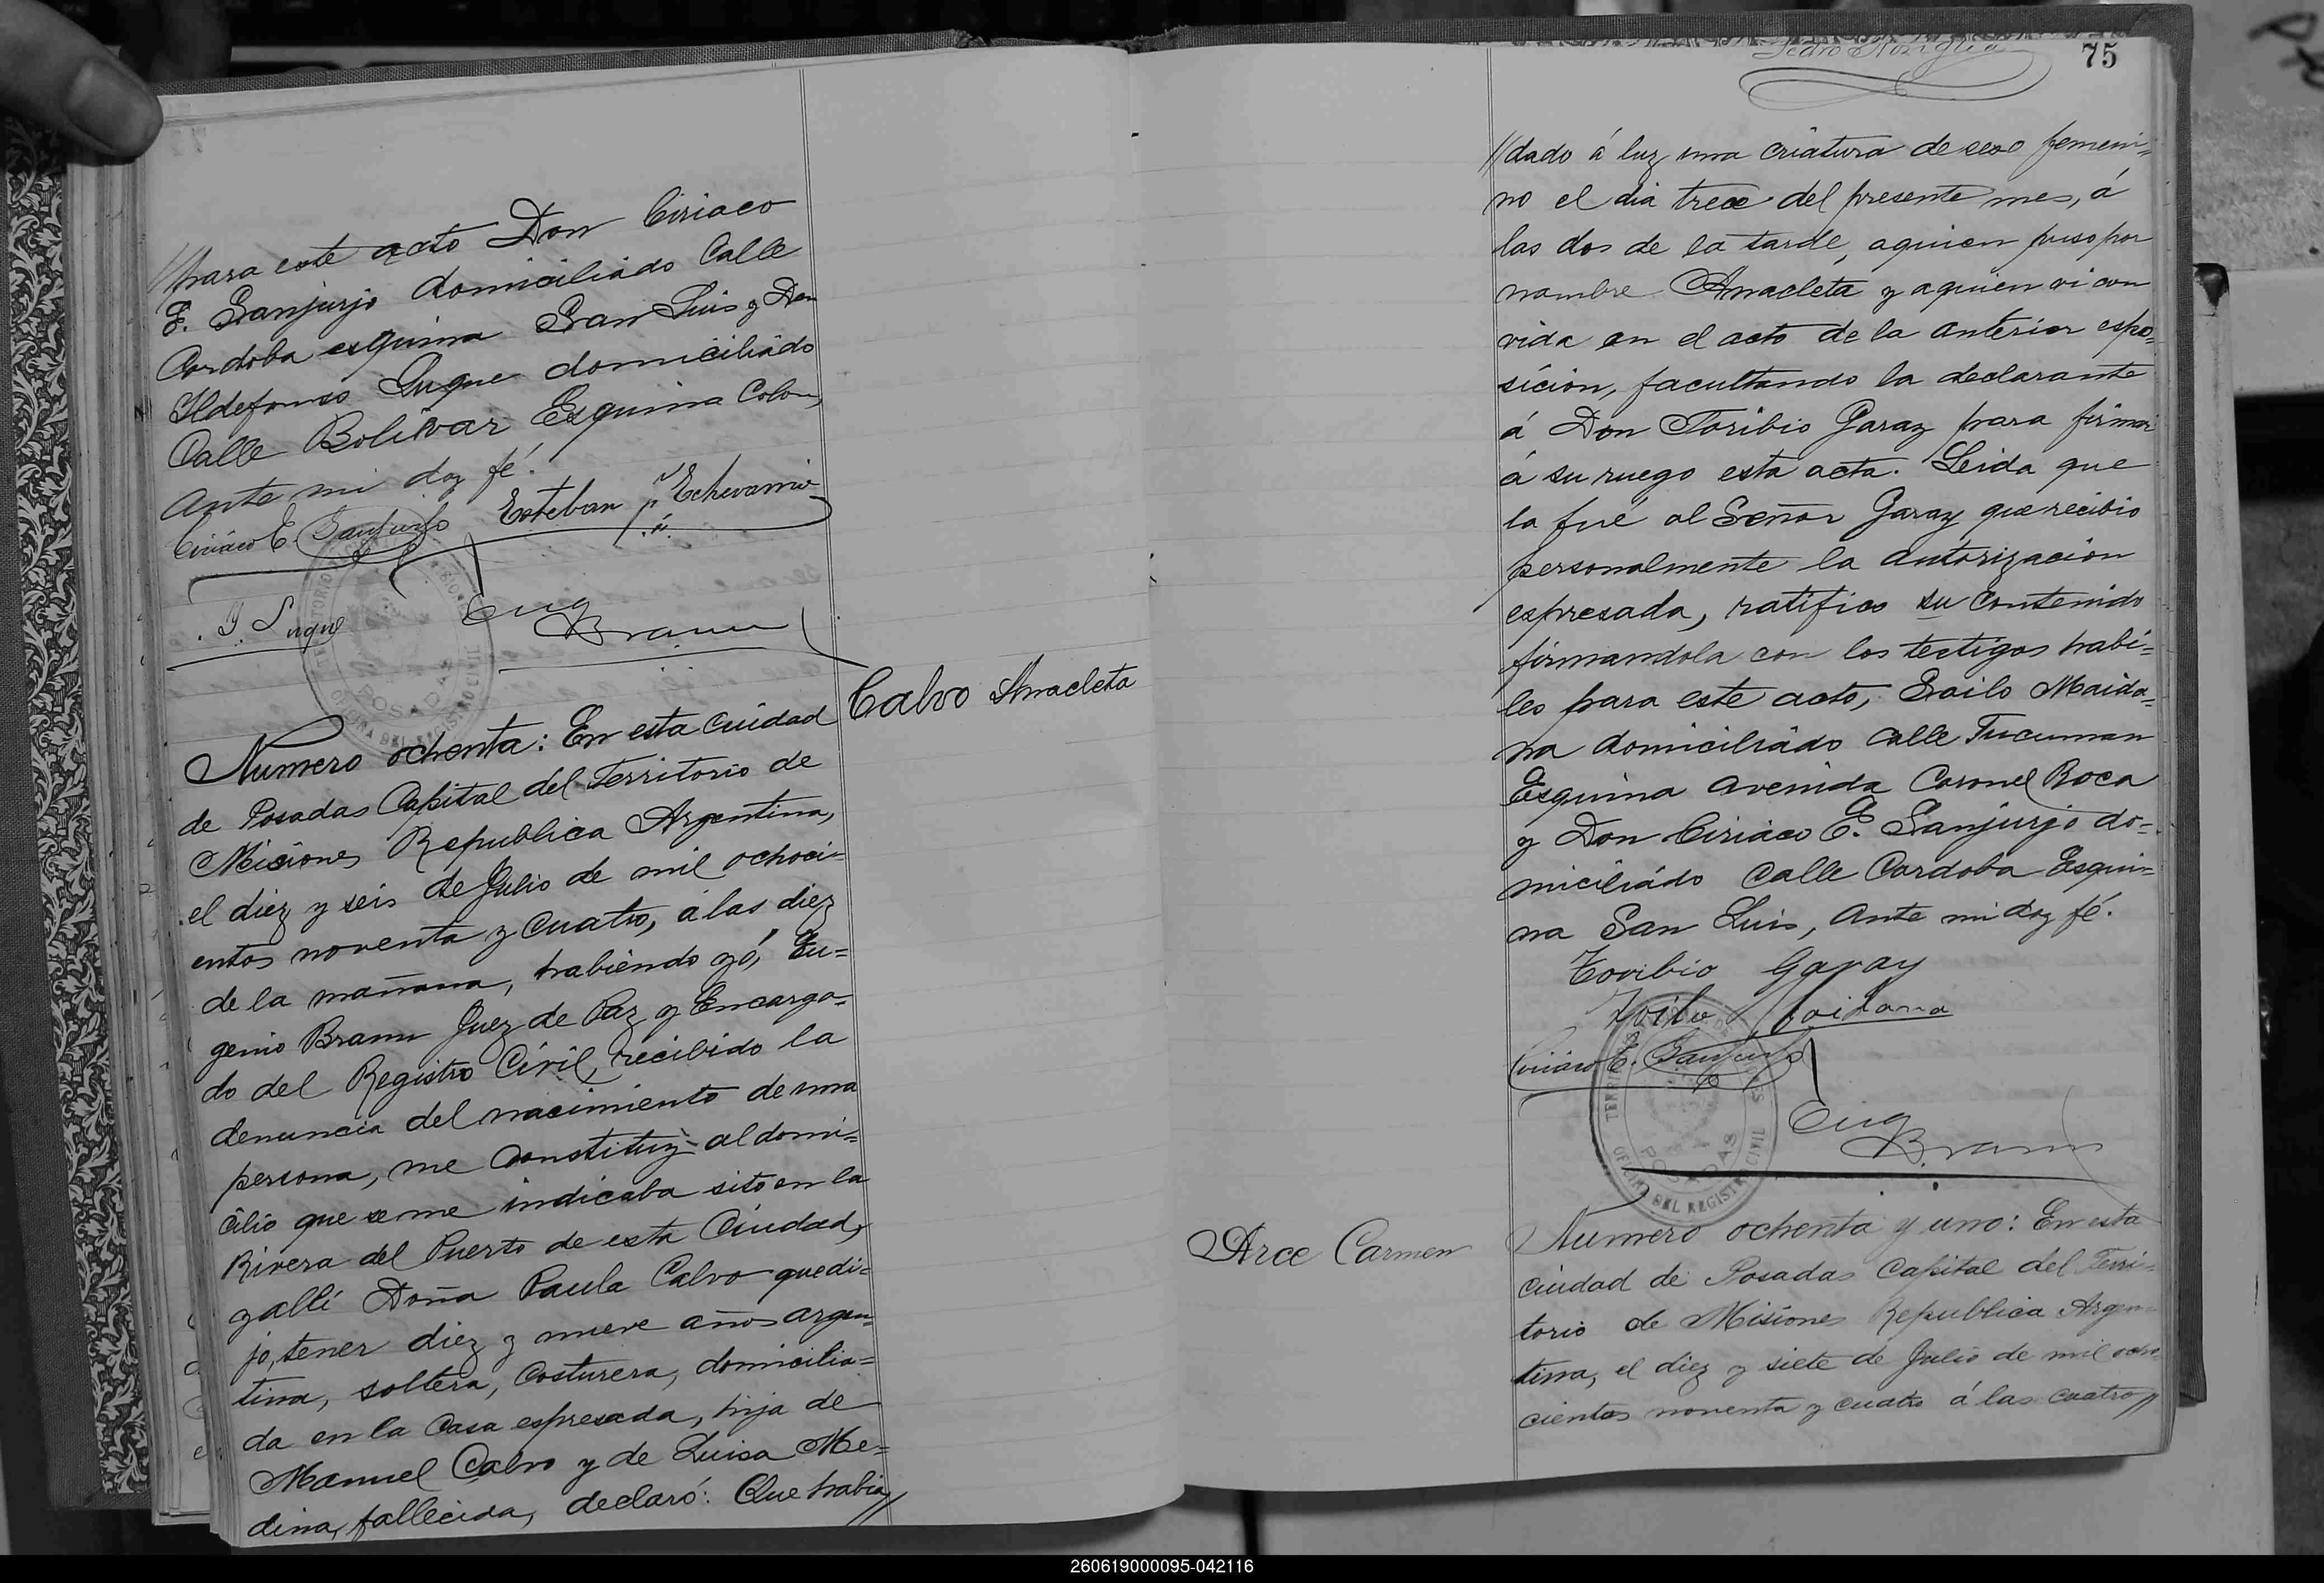 //para este acto Don Ciriaco
E. Sanjurjo domiciliado Calle
Cordoba esquina San Luis y Don
Ildefonso Luque domiciliado
Calle Bolivar Esquina Colon,
Ante mi doy fé.
Ciriaco E. Sanjurjo Esteban Echevarria
I. Luque
Eug Braun
Calvo Anacleta
Numero ochenta: En esta Ciudad
de Posadas Capital del Territorio de
Misiones Republica Argentina,
el diez y seis de Julio de mil ochoci=
entos noventa y cuatro, á las diez
de la mañana, habiendo yó, Eu=
genio Braun Juez de Paz y Encarga=
do del Registro Civil, recibido la
denuncia del nacimiento de una
persona, me constituy al domi=
cilio que se me indicaba sito en la
Rivera del Puerto de esta Ciudad,
y allí Doña Paula Calvo que di=
jo, tener diez y nueve años argen=
tina, soltera, costurera, domicilia=
da en la casa espresada, hija de
Manuel Calvo y de Luisa Me=
dina, fallecida, declaró: Que habia//
75
//dado á luz una criatura de sexo femeni=
no el dia trece del presente mes, á
las dos de la tarde, a quien puso por
nombre Anacleta y a quien vi con
vida en el acto de la anterior espo=
sicion, facultando la declarante
á Don Toribio Garay para firmar
á su ruego esta acta. Leida que
la fué al Señor Garay que recibio
personalmente la autorizacion
espresada, ratifico su contenido
firmandola con los testigos habi=
les para este acto, Soilo Maida=
na domiciliado calle Tucuman
Esquina avenida Coronel Roca
y Don Ciriaco E. Sanjurjo do=
miciliado Calle Cordoba Esqui=
na San Luis, Ante mi doy fé.
Toribio Garay
Zoilo Maidana
Ciriaco E. Sanjurjo
Eug Braun
TERRITORIO
POSADAS
OFICINA DEL REGISTRO CIVIL
Arce Carmen
Numero ochenta y uno: En esta
ciudad de Posadas Capital del Terri=
torio de Misiones Republica Argen=
tina, el diez y siete de Julio de mil ocho=
cientos noventa y cuatro á las cuatro//
260619000095-042116